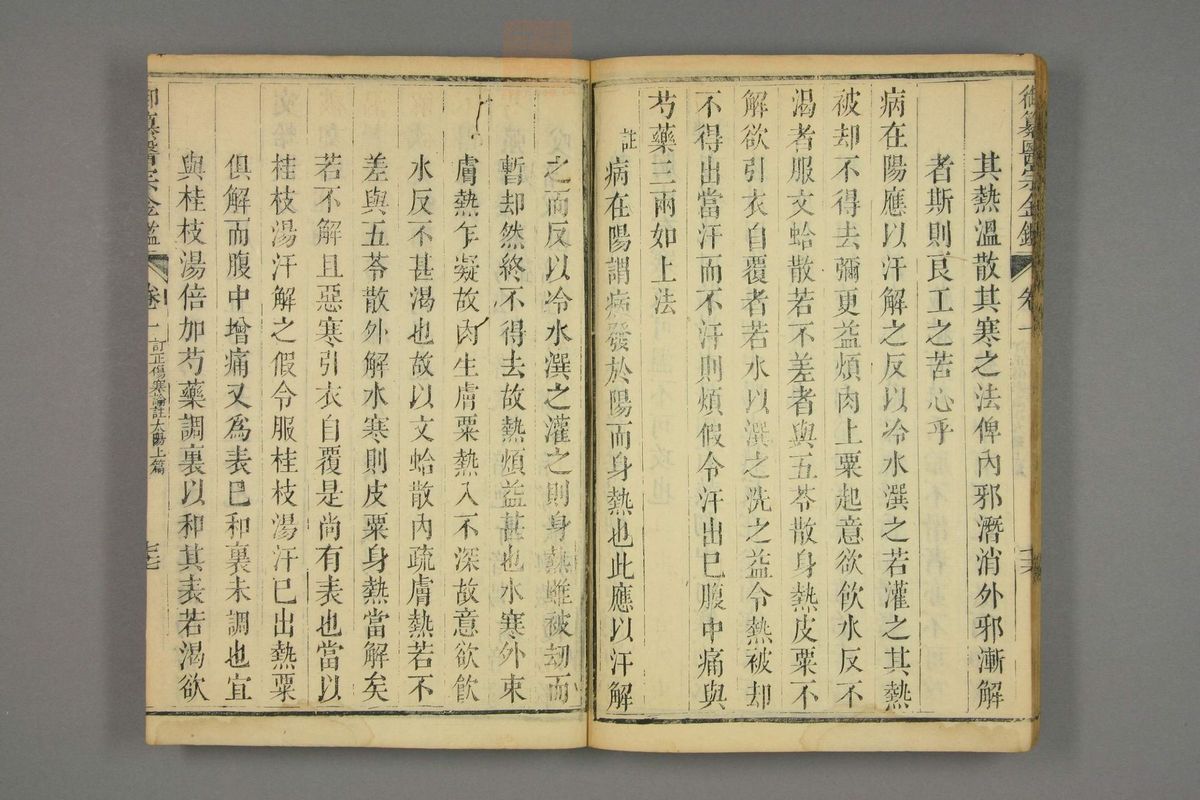 御纂醫宗金鑑 卷一
其熱溫散其寒之法俾內邪潛消外邪漸解
者斯則良工之苦心乎
病在陽應以汗解之反以冷水潠之若灌之其熱
被却不得去彌更益煩肉上粟起意欲飲水反不
渴者服文蛤散若不差者與五苓散身熱皮粟不
解欲引衣自覆者若水以潠之洗之益令熱被却
不得出當汗而不汗則煩假令汗出巳腹中痛與
芍藥三兩如上法
註病在陽謂病發於陽而身熱也此應以汗解
之而反以冷水潠之灌之則身熱雖被刼而
暫却然終不得去故熱煩益甚也水寒外束
膚熱乍凝故肉生膚粟熱入不深故意欲飲
水反不甚渴也故以文蛤散內疏膚熱若不
差與五苓散外解水寒則皮粟身熱當解矣
若不解且惡寒引衣自覆是尚有表也當以
桂枝湯汗解之假令服桂枝湯汗巳出熱粟
俱解而腹中增痛又為表巳和裏未調也宜
與桂枝湯倍加芍藥調裏以和其表若渴欲
御纂醫宗金鑑 卷一 訂正傷寒論註太陽上篇